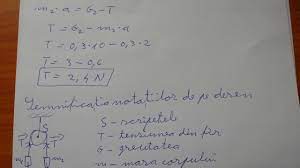 m₂·a = G₂-T
T = G₂ - m₂·a
T = 0,3·10 - 0,3·2
T = 3 - 0,6
T = 2,4 N
Semnificația notațiilor de pe desen
S - scripetele
T - tensiunea din fir
G - greutatea
m - masa corpului
T T